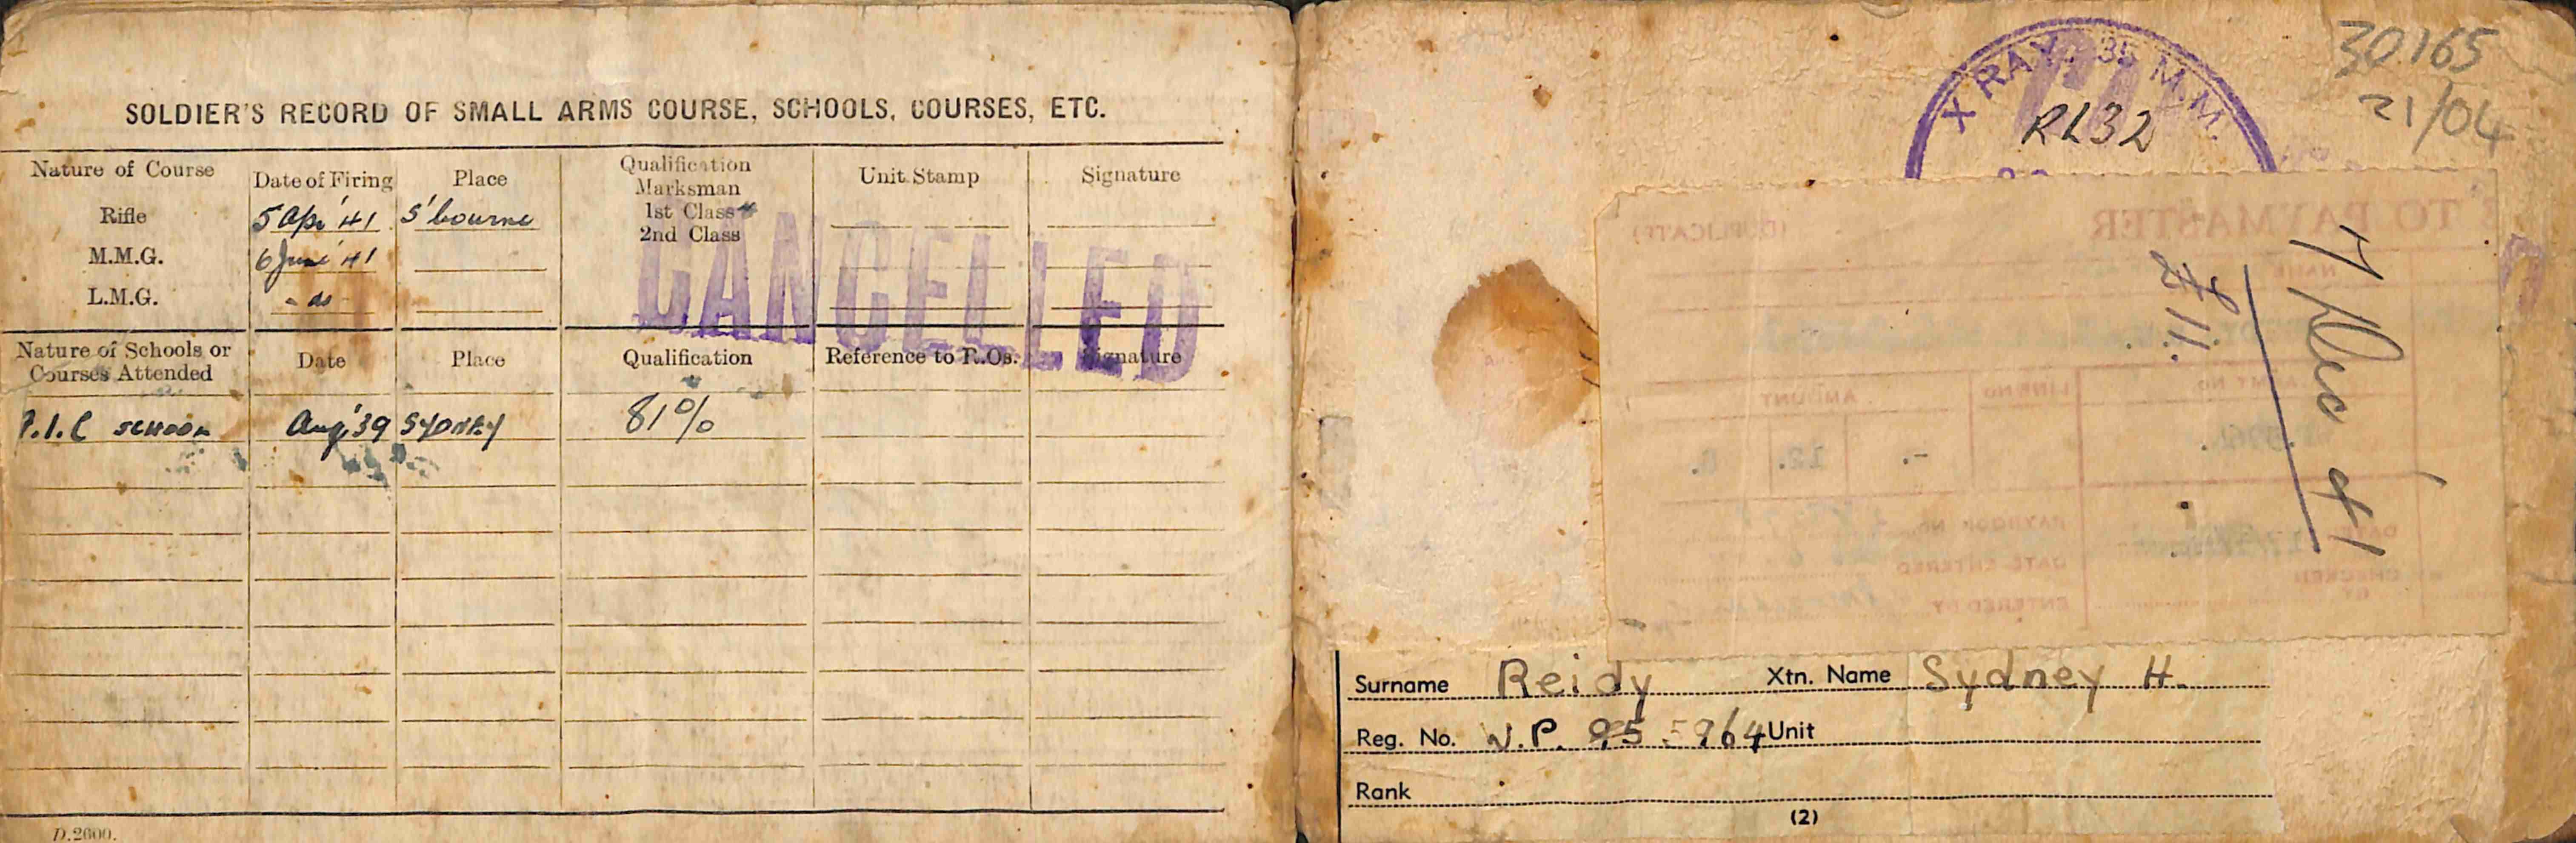 SOLDIER'S RECORD OF SMALL ARMS COURSE, SCHOOLS, COURSES, ETC.
Nature of Course Date of Firing Place Qualification Marksman 1st Class 2nd Class Unit Stamp Signature
Rifle 5 Apr '41 S'bourne
M.M.G. 6 June '41
L.M.G. - do -
CANCELLED
Nature of Schools or Courses Attended Date Place Qualification Reference to R.Os. Signature
P.I.C SCHOOL Aug '39 SYDNEY 81%
D.2600.
30165
21/04
X RAY 35 M.M.
RL32
TO PAYMASTER
(DUPLICATE)
NAME
AMOUNT
LINE No
12.
PAYBOOK No.
DATE ENTERED
ENTERED BY
DATE
CHECKED
BY
7 Dec 41
Surname Reidy Xtn. Name Sydney H.
Reg. No. W.P. 95 5964 Unit
Rank
(2)